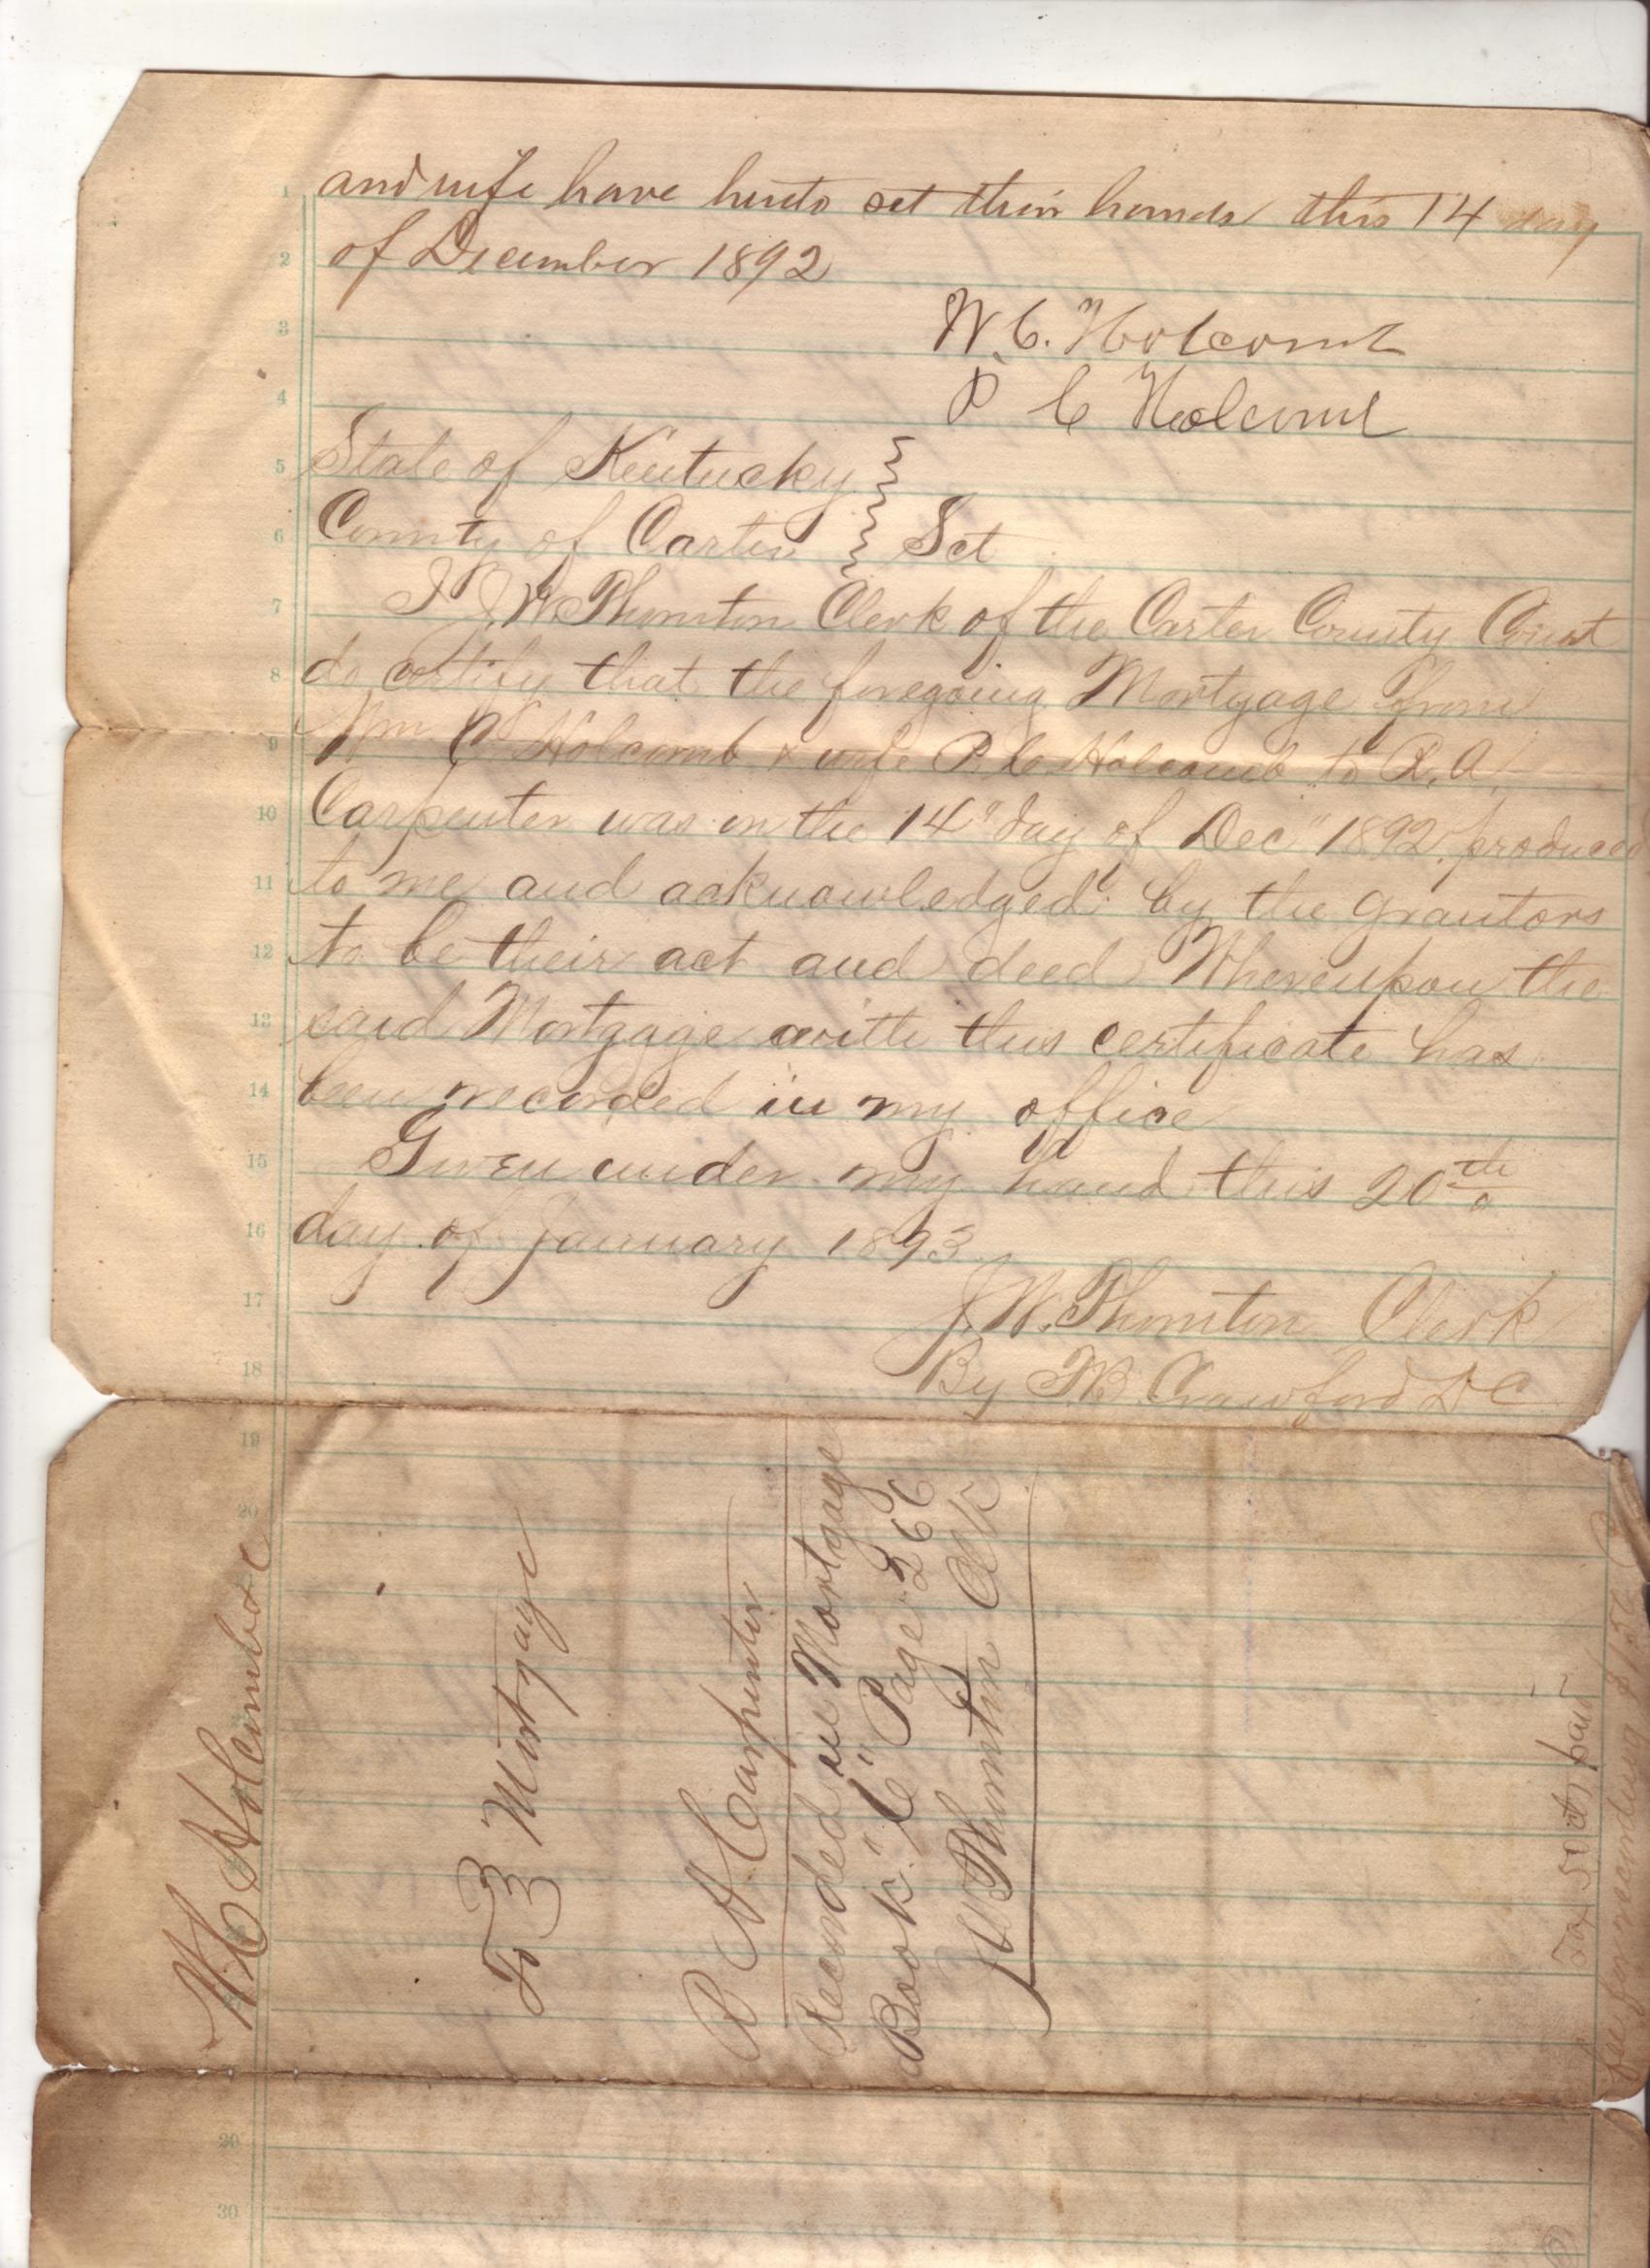 and wife have hereto set their hands this 14 day
of December 1892
W. C. Holcomb
P C Holcomb
State of Kentucky
County of Carter } Sct
I J. W. Thornton Clerk of the Carter County Court
do certify that the foregoing Mortgage from
Wm C Holcomb & wife P. C. Holcomb to R. A.
Carpenter was on the 14" day of Dec" 1892 produced
to me and acknowledged by the grantors
to be their act and deed Whereupon the
said Mortgage with this certificate has
been recorded in my office
Given under my hand this 20th
day of January 1893
J. W. Thornton Clerk
By Crawford D C
W C Holcomb & C
To } Mortgage
R A Carpenter
Recorded in Mortgage
Book "C" Page 266
J W Thornton Clk
Tax 50 cts paid
fee for recording $1.50
1
2
3
4
5
6
7
8
9
10
11
12
13
14
15
16
17
18
19
20
29
30